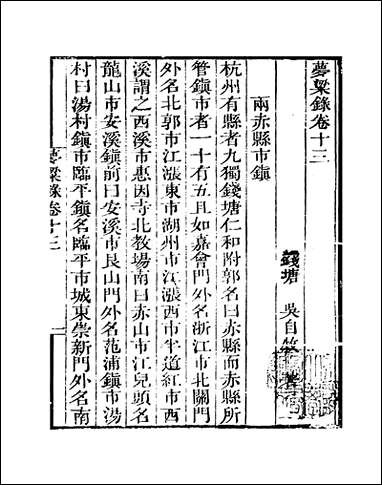 夢粱錄卷十三
錢塘 吳自牧 著
兩赤縣市鎮
杭州有縣者九獨錢塘仁和附郭名曰赤縣而赤縣所
管鎮市者一十有五且如嘉會門外名浙江市北關門
外名北郭市江漲東市湖州市江漲西市半道紅市西
溪謂之西溪市惠因寺北教場南曰赤山市江兒頭名
龍山市安溪鎮前曰安溪市艮山門外名范浦鎮市湯
村曰湯村鎮市臨平鎮名臨平市城東崇新門外名南
夢粱錄卷十三
一